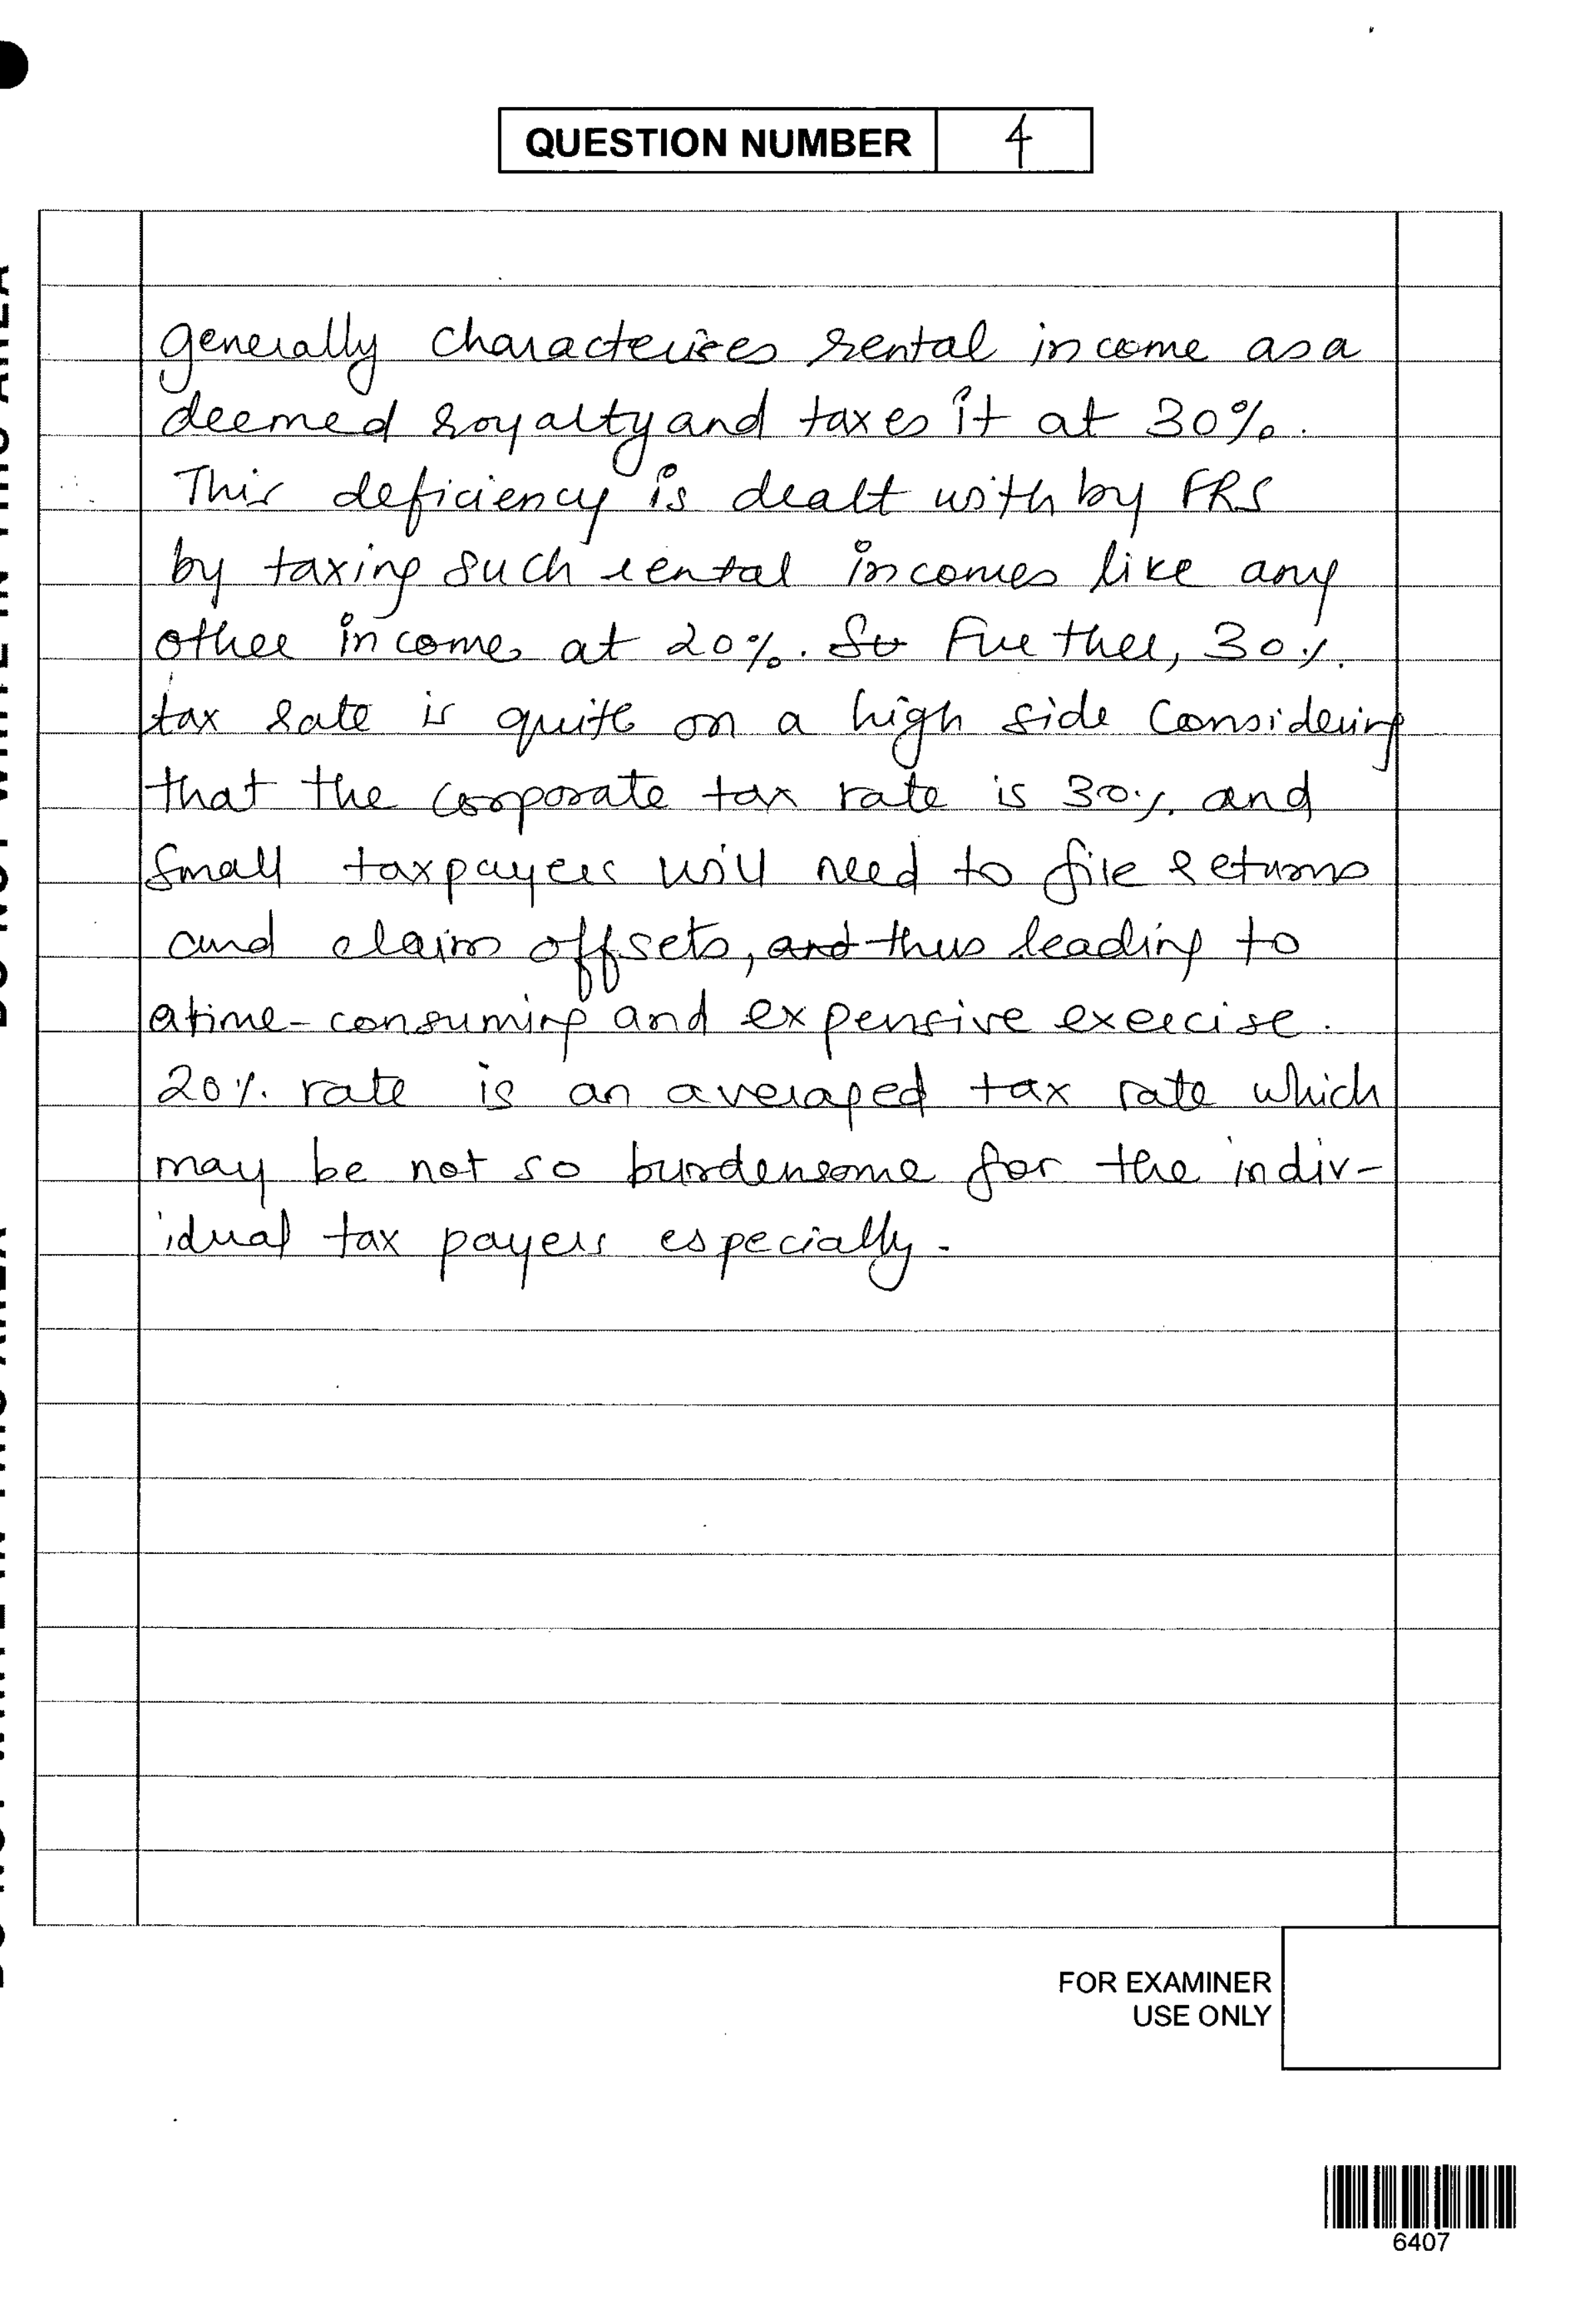 QUESTION NUMBER 4
generally characterises rental income as a
deemed royalty and taxes it at 30%.
This deficiency is dealt with by FRS
by taxing such rental incomes like any
other income at 20%. So Further, 30%
tax rate is quite on a high side considering
that the corporate tax rate is 30% and
small taxpayers will need to file returns
and claim offsets, and thus leading to
a time-consuming and expensive exercise.
20% rate is an averaged tax rate which
may be not so burdensome for the indiv-
idual tax payers especially.
FOR EXAMINER
USE ONLY
6407